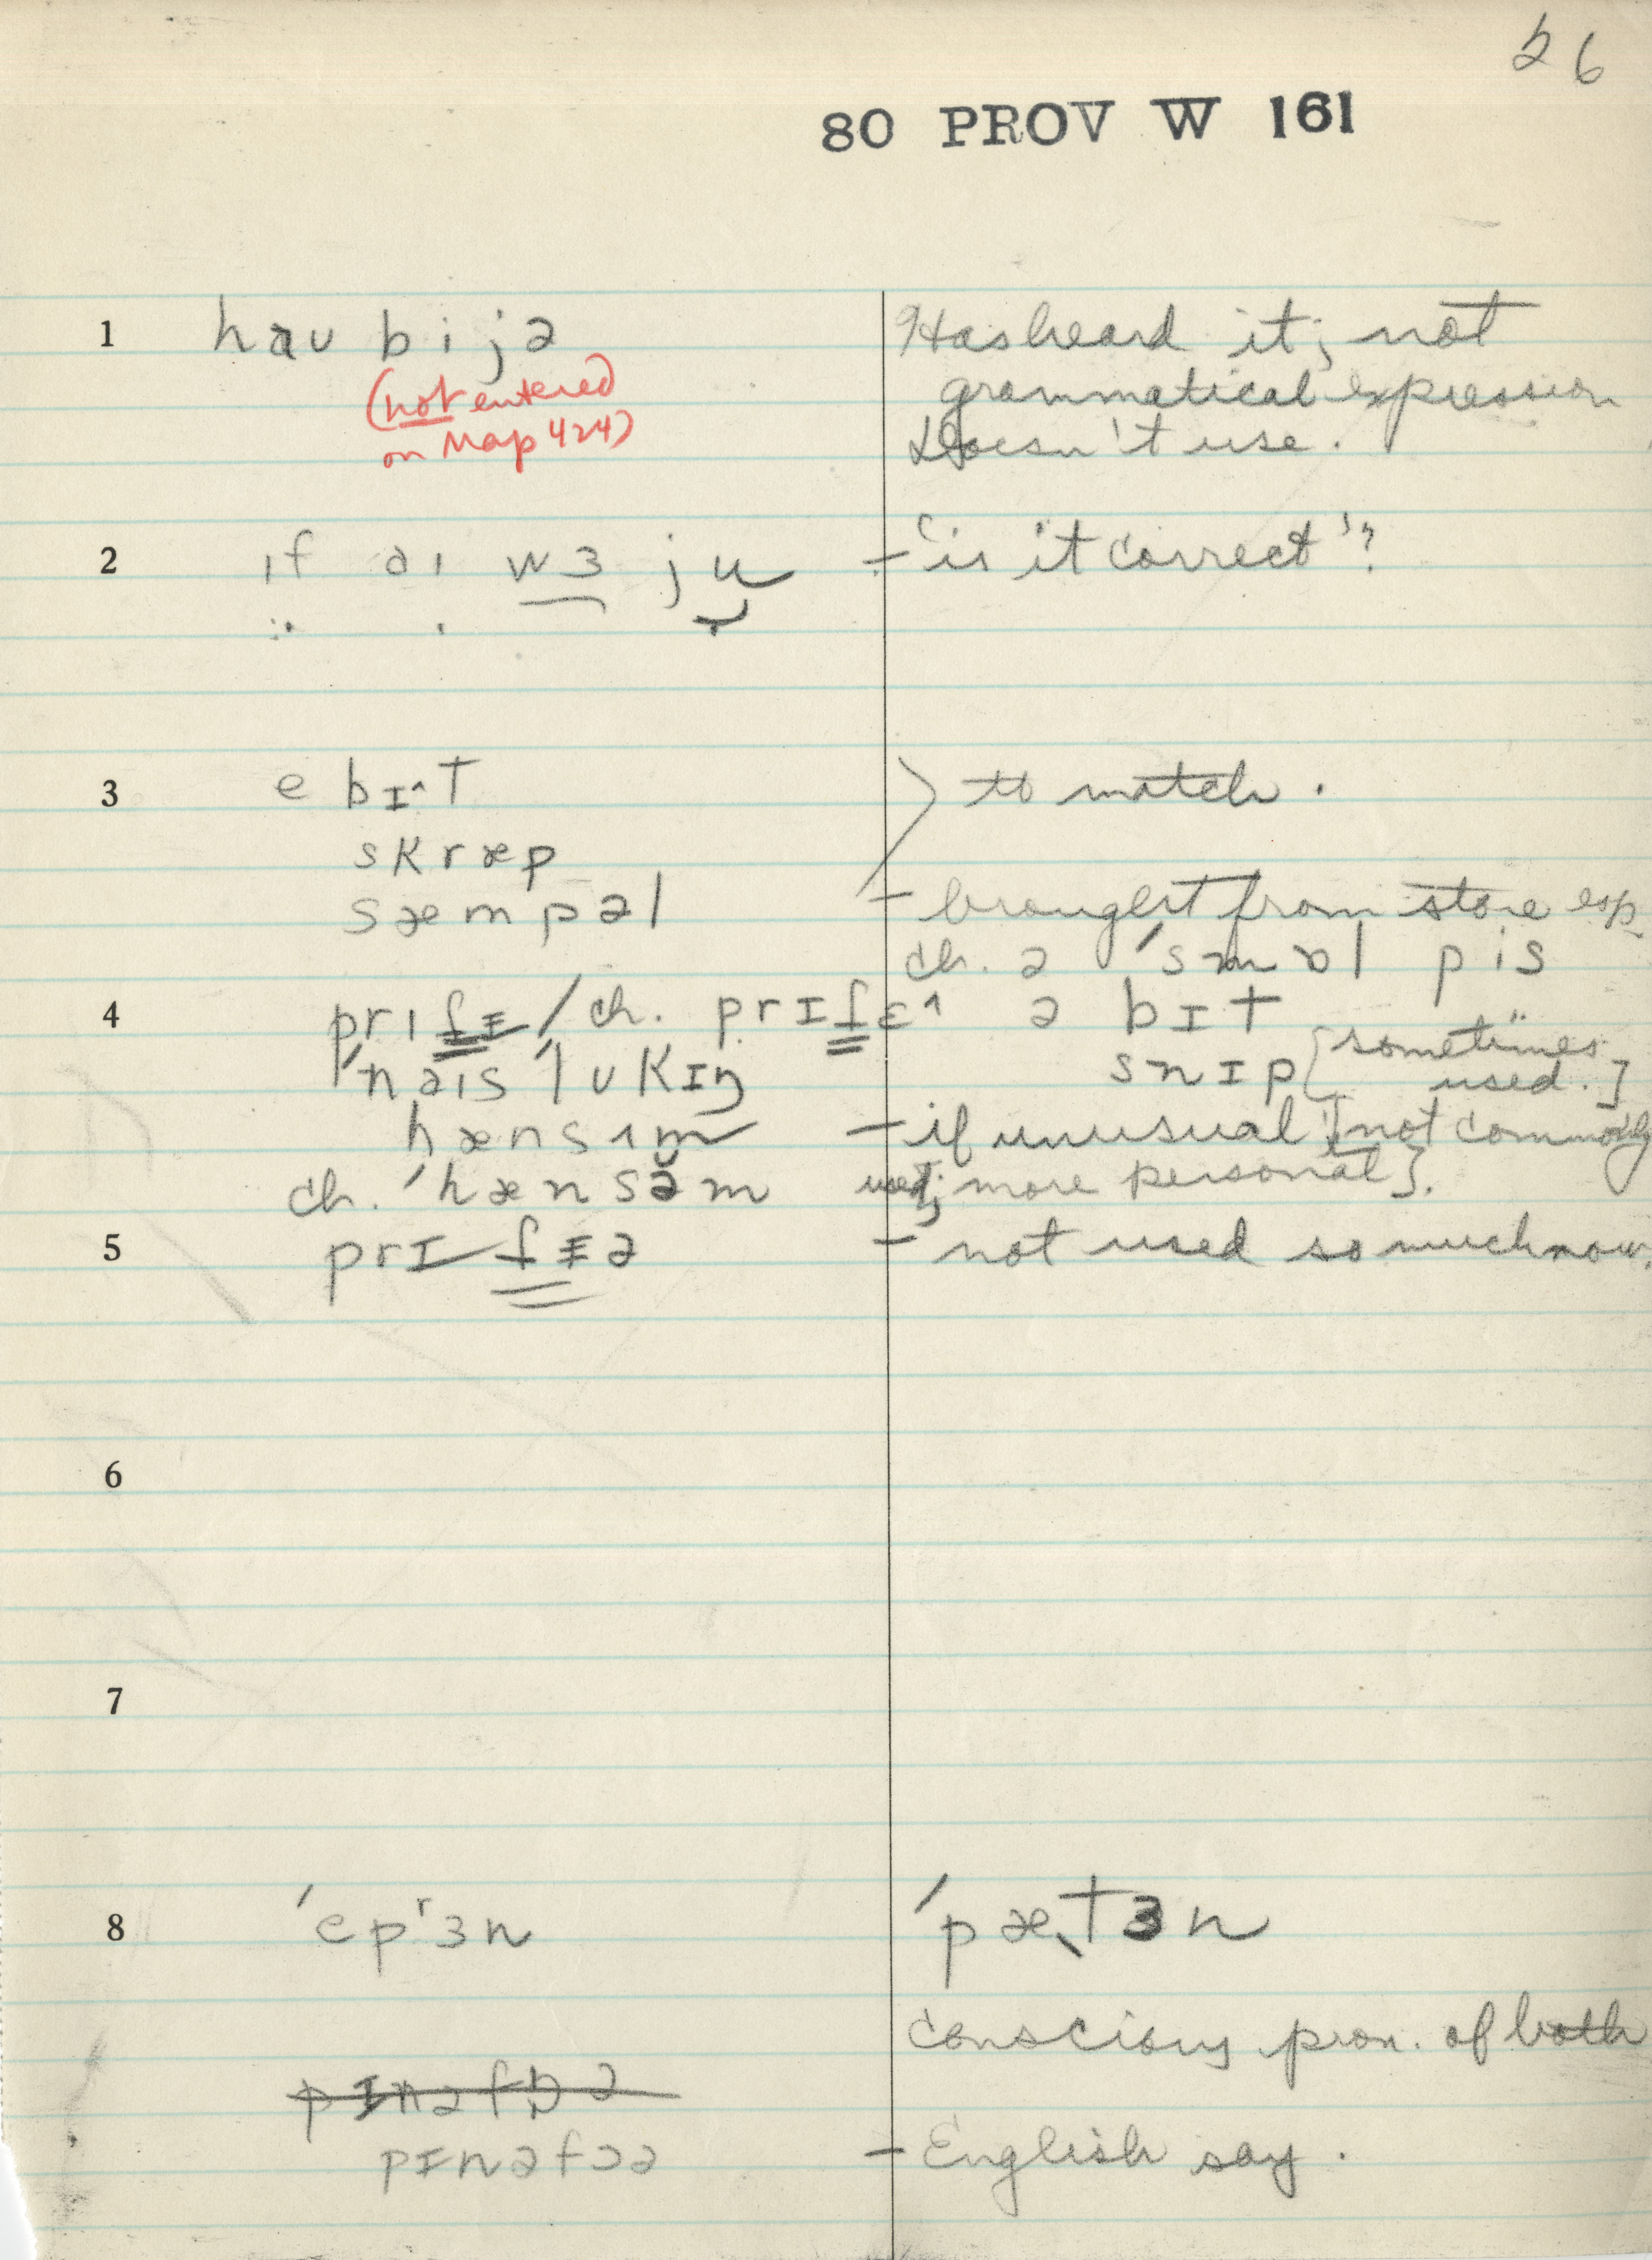 26
80 PROV W 161
1 haʊ bi jə
Has heard it; not
grammatical expression
Doesn't use.
(not entered
on Map 424)
2 ɪf aɪ wɜ ju – 'is it correct'?
3 ə bɪ^t
to match.
skræp
sæmpəl – brought from store esp.
ch. ə ˈsmɒl pis
4 / ch. ə bɪt
ˈnaɪs ˈlʊkɪŋ snɪp [sometimes
used.]
hænsɪm – if unusual [not commonly
ch. ˈhænsəm used; more personal].
5 – not used so much now.
6
7
8 ˈepʳɜn ˈpætɜn
conscious pron. of both
pɪnəfɒə
pɪnəfɔə – English say.